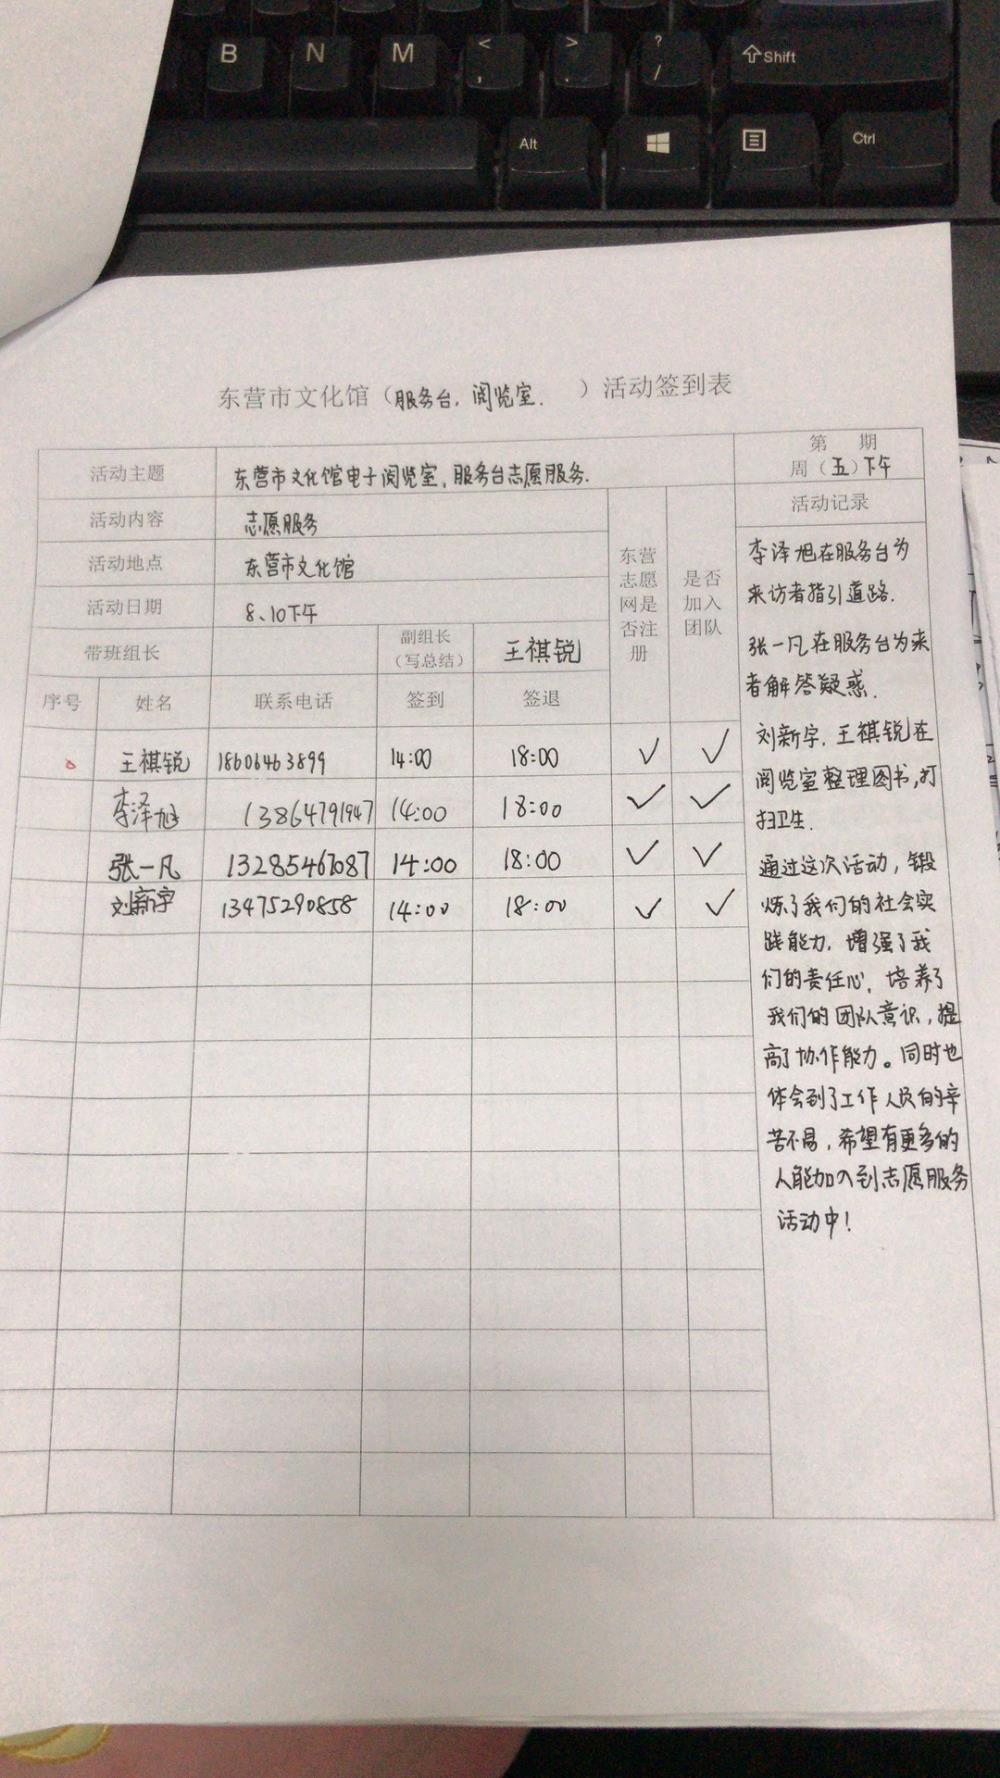 B N M < , > . ? / Shift
Alt Ctrl
东营市文化馆（服务台.阅览室. ）活动签到表
活动主题 东营市文化馆电子阅览室,服务台志愿服务.
第 期
周（五）下午
活动内容 志愿服务
活动地点 东营市文化馆
活动日期 8、10下午
带班组长 副组长（写总结） 王祺锐
东营志愿网是否注册
是否加入团队
活动记录
序号 姓名 联系电话 签到 签退
王祺锐 18606463899 14:00 18:00 ✓ ✓
李泽旭 13864791947 14:00 18:00 ✓ ✓
张一凡 13285467087 14:00 18:00 ✓ ✓
刘新宇 13475290858 14:00 18:00 ✓ ✓
李泽旭在服务台为
来访者指引道路.
张一凡在服务台为来
者解答疑惑.
刘新宇.王祺锐在
阅览室整理图书,打
扫卫生.
通过这次活动,锻
炼了我们的社会实
践能力,增强了我
们的责任心,培养了
我们的团队意识,提
高了协作能力。同时也
体会到了工作人员的辛
苦不易,希望有更多的
人能加入到志愿服务
活动中!